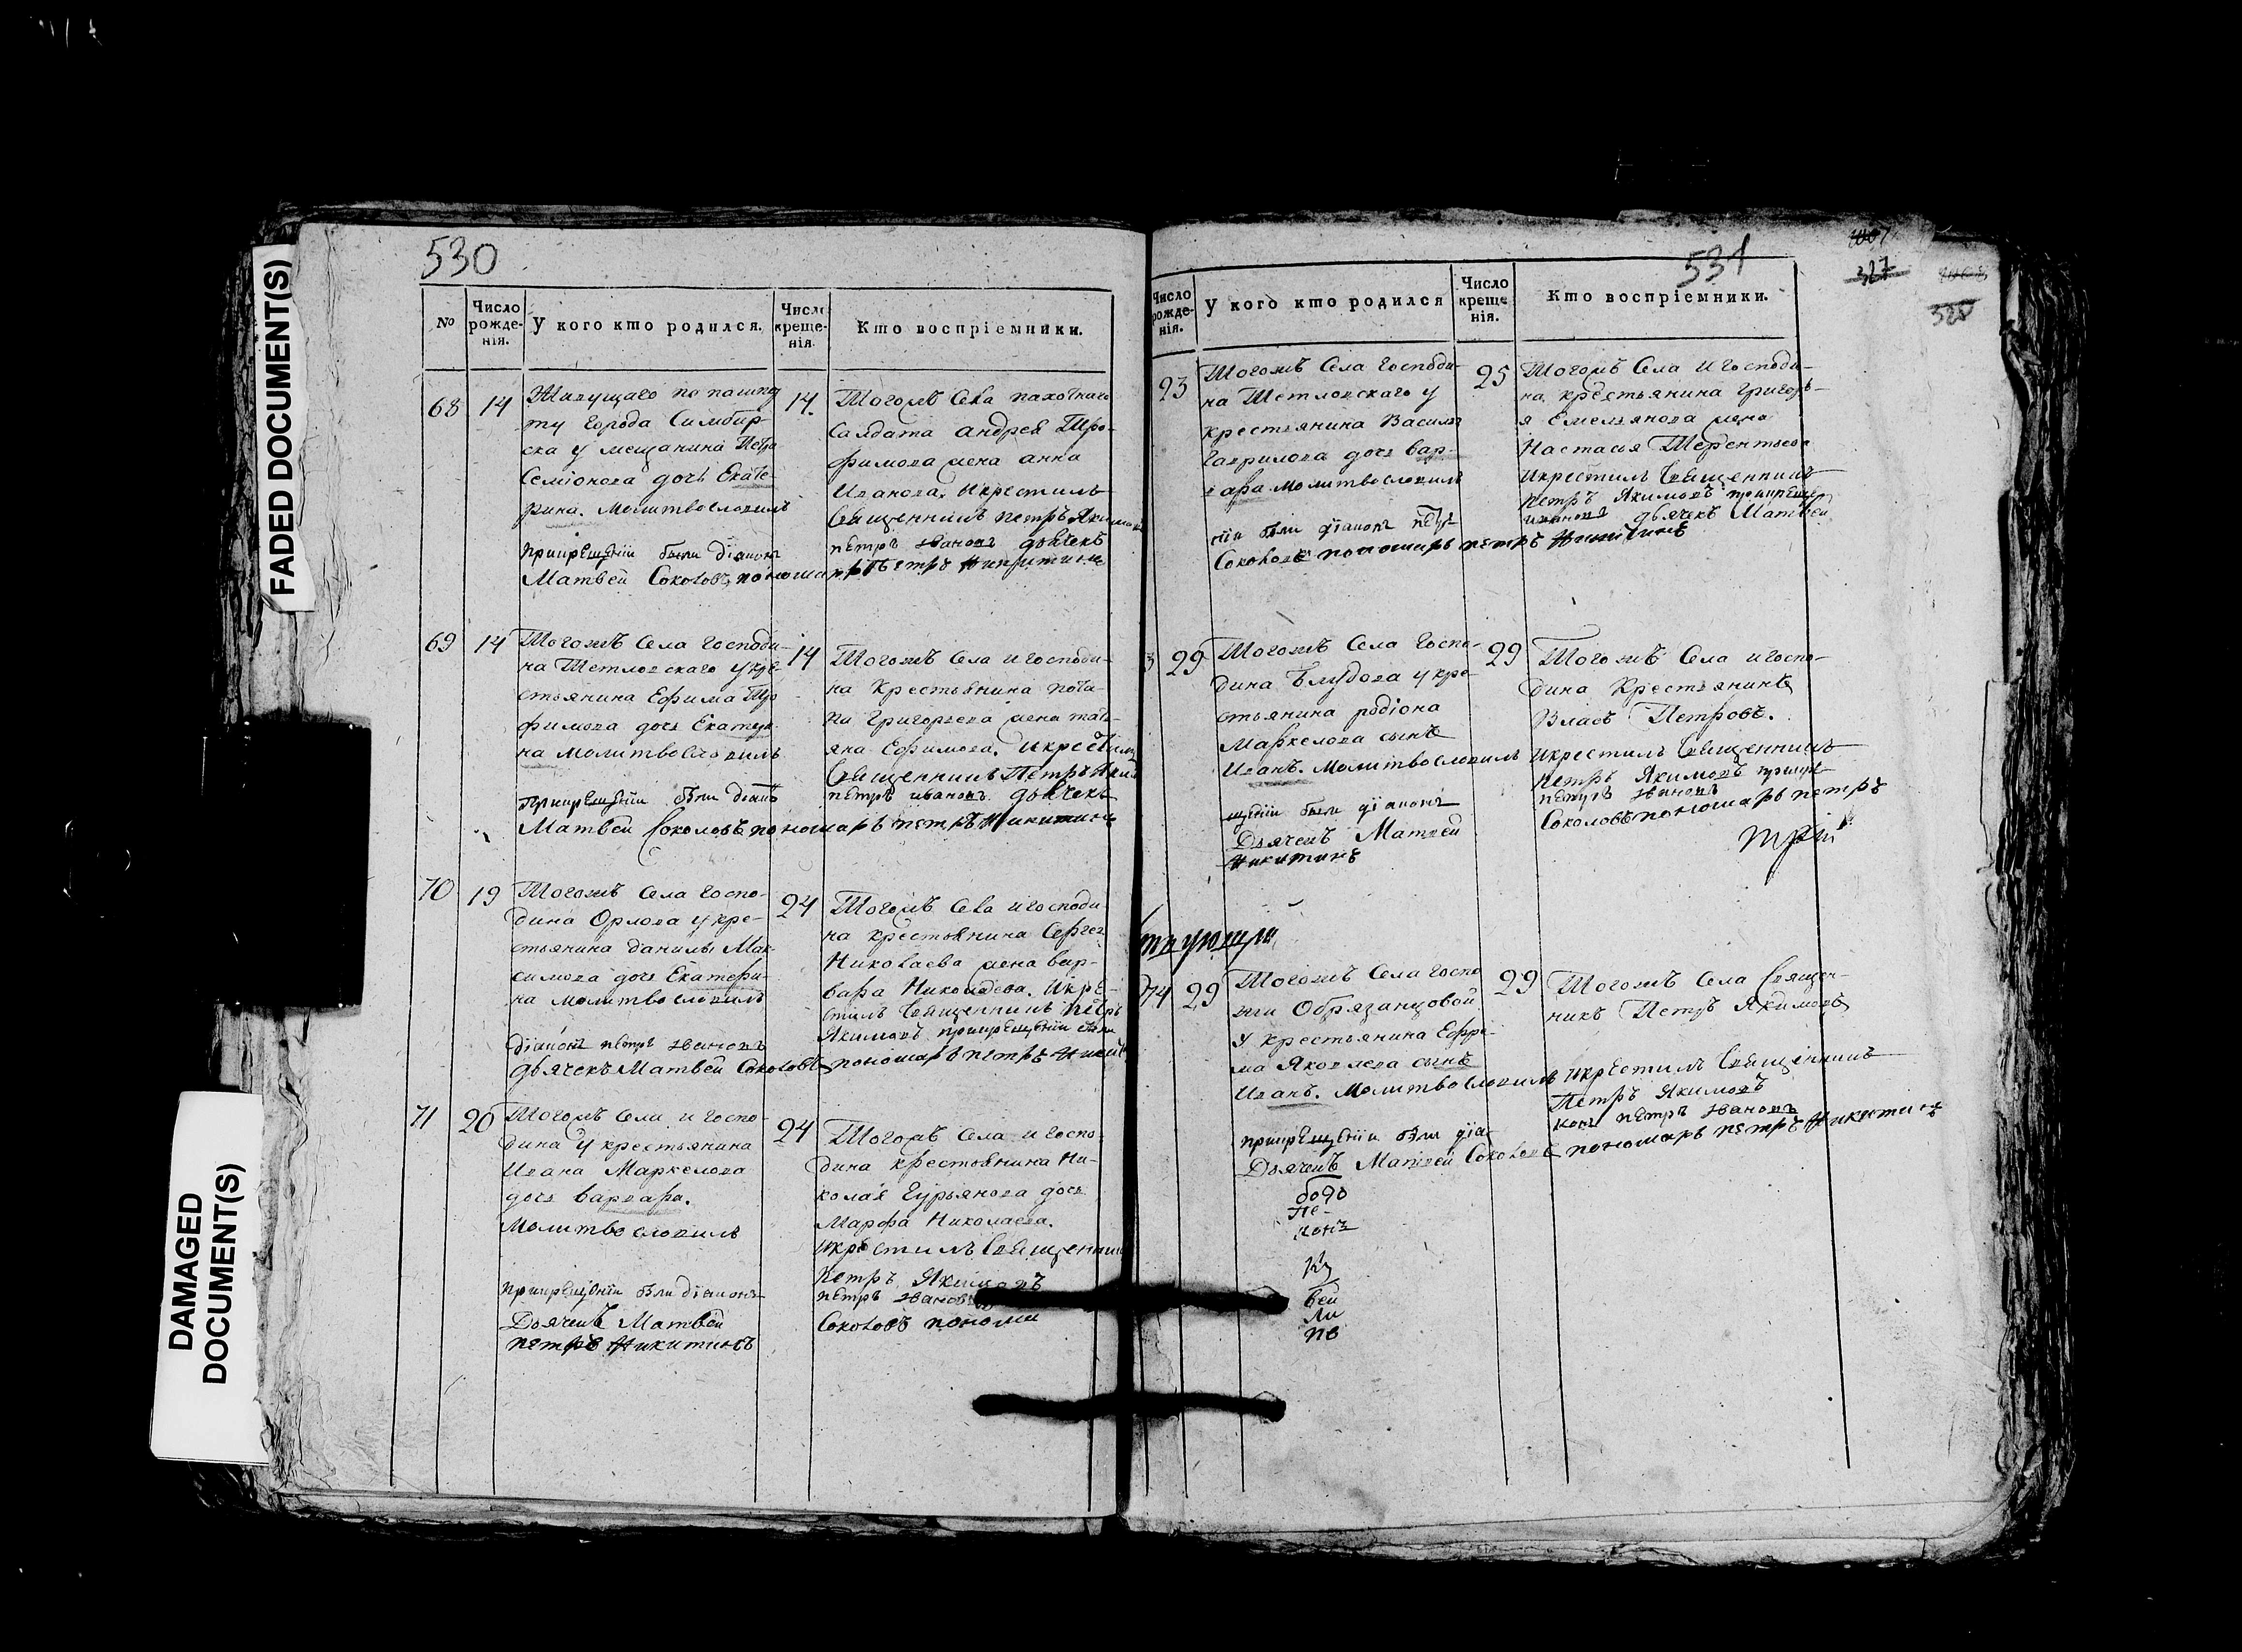 FADED DOCUMENT(S)
DAMAGED
DOCUMENT(S)
530
№
Число рожде-нія.
У кого кто родился.
Число креще-нія.
Кто воспріемники.
68
14
Живущаго по пашпор
ту города Симбир
ска у мещанина Петра
Семіонова дочь Екате-
рина. Молитвословилъ
прикрещеніи были діаконъ
Матвей Соколовъ, пономарь Петръ Никитинъ
14.
Тогожъ Села пахотнаго
Салдата Андрея Тро-
фимова жена анна
Иванова. Икрестилъ
Священникъ петръ Якимовъ
петръ Ивановъ дьячекъ
69
14
Тогожъ Села Господи-
на Петловскаго у кре-
стьянина Ефима Тро
фимова дочь Екатери-
на молитвословилъ
Прикрещеніи были діаконъ
Матвей Соколовъ пономарь петръ Никитинъ
14
Тогожъ Села игосподи-
на Крестьянина пота-
па Григорьева жена тать-
яна Ефимова. Икрестилъ
Священникъ Петръ Якимовъ
петръ ивановъ дьячекъ
70
19
Тогожъ Села Госпо-
дина Орлова у кре-
стьянина данилы Мак-
симова дочь Екатери-
на молитвословилъ
діаконъ петръ Ивановъ
дьячекъ Матвей Соколовъ пономарь петръ Никити
24
Тогожъ Села игосподи
на крестьянина Сергея
Николаева жена вар-
вара Николаева. Икре-
стилъ Священникъ петръ
Якимовъ прикрещеніи были
71
20
Тогожъ Села и госпо-
дина у крестьянина
Ивана Маркелова
дочь варвара.
Молитвословилъ
прикрещеніи были діаконъ
Дьячекъ Матвей
петръ Никитинъ
24
Тогожъ Села и госпо
дина крестьянина Ни-
колая Гурьянова дочь
Марфа Николаева.
икрестилъ Священникъ
петръ Якимовъ
петръ Ивановъ
Соколовъ понома
531
327
328
Число рожде-нія.
У кого кто родился
Число креще нія.
Кто воспріемники.
23
Тогожъ Села господи-
на Петловскаго у
крестьянина Василья
Гаврилова дочь вар-
вара молитвословилъ
ніи были діаконъ петръ
Соколовъ пономарь петръ Никитинъ
25
Тогожъ Села И господи-
на крестьянина Григорь-
я Емельянова жена
Настасья Терентьева
икрестилъ Священникъ
петръ Якимовъ прикреще
ивановъ дьячекъ Матвей
3
29
Тогожъ Села Госпо-
дина Блудова у кре-
стьянина родіона
Маркелова сынъ
Иванъ. Молитвословилъ
щеніи были діаконъ
Дьячекъ Матвей
Никитинъ
29
Тогожъ Села игоспо-
дина Крестьянинъ
Власъ Петровъ.
икрестилъ Священникъ
петръ Якимовъ прикре-
петръ Ивановъ
Соколовъ пономарь петръ
74
29
Тогожъ Села госпо
жи Обрязанцовой
у крестьянина Ефре-
ма Яковлева сынъ
Иванъ. Молитвословилъ
прикрещеніи были діа
Дьячекъ Матвей Соколовъ пономарь петръ Никитинъ
29
Тогожъ Села Священ-
никъ Петръ Якимовъ
икрестилъ Священникъ
Петръ Якимовъ
конъ петръ Ивановъ
бодо
не-
конъ
вей
ли
по